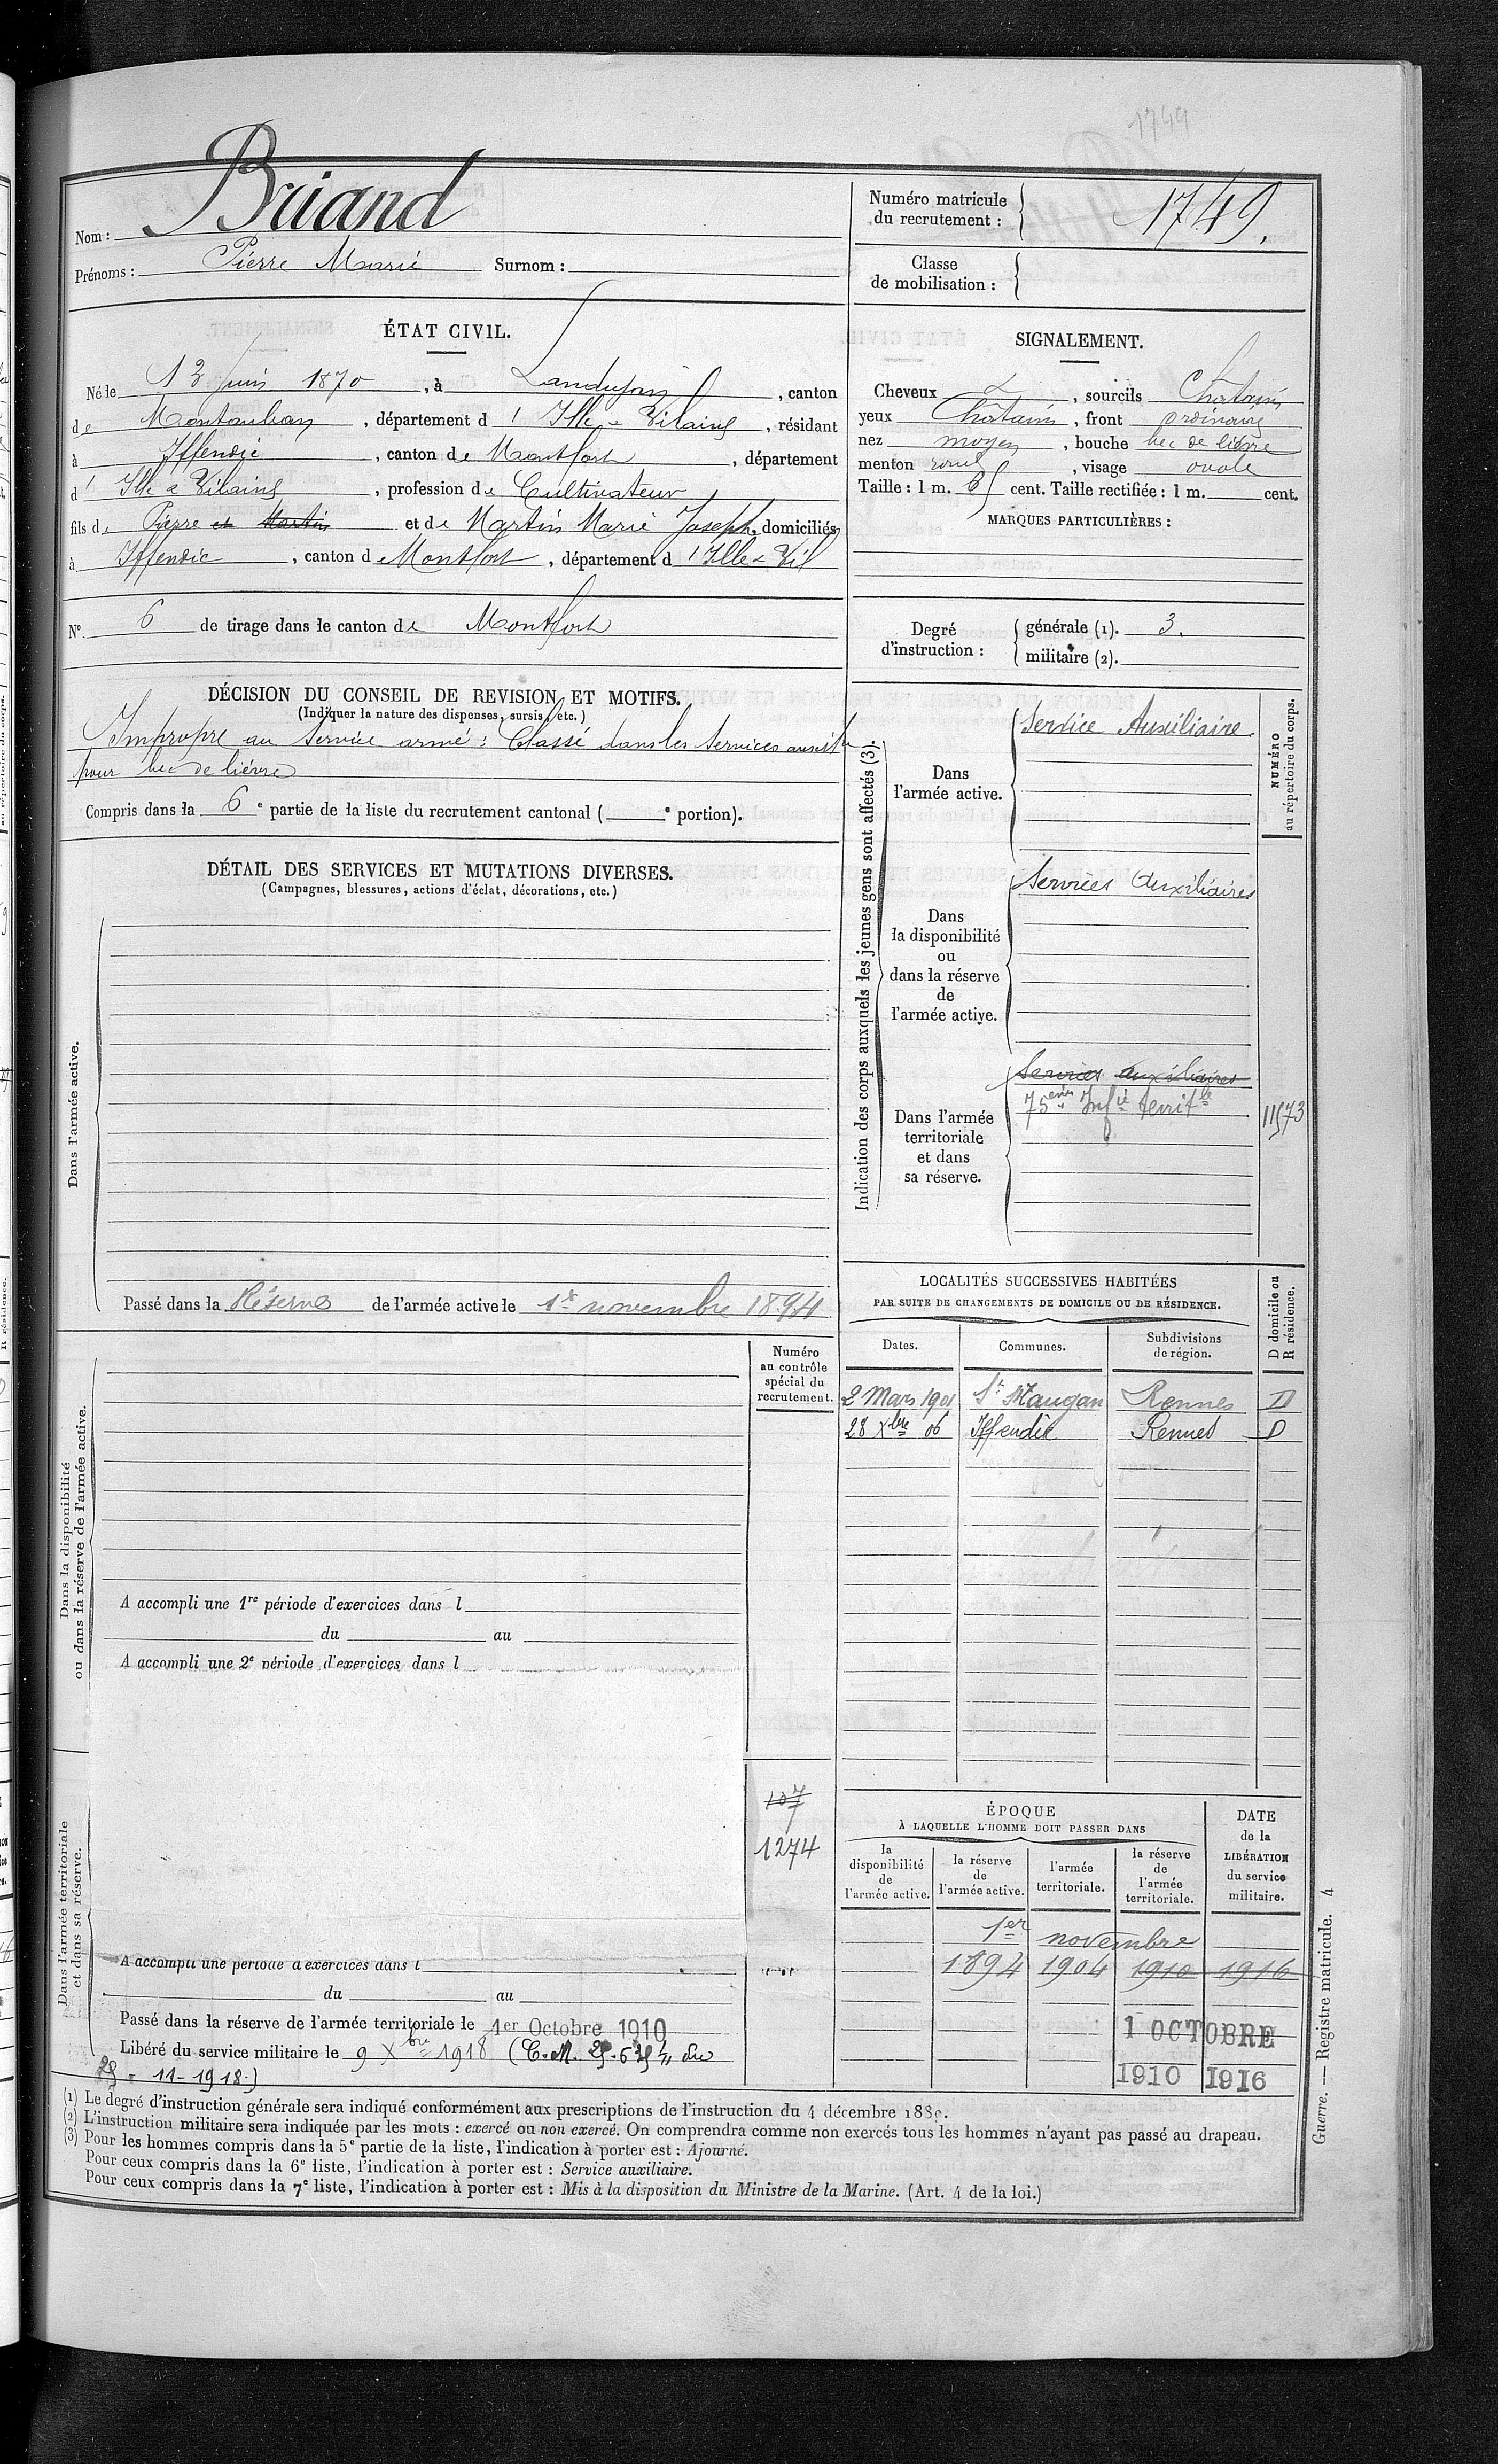 1749
Nom : Briand
Prénoms : Pierre Marie Surnom :
Numéro matricule du recrutement : 1749.
Classe de mobilisation :
ÉTAT CIVIL.
Né le 13 Juin 1870, à Landujan, canton
de Montauban, département d'Ille & Vilaine, résidant
à Iffendic, canton de Montfort, département
d'Ille & Vilaine, profession de Cultivateur
fils de Pierre et Martin et de Martin Marie Joseph, domiciliés
à Iffendic, canton de Montfort, département d'Ille & Vil
N° 6 de tirage dans le canton de Montfort
SIGNALEMENT.
Cheveux, sourcils Châtains
yeux Châtains, front ordinaire
nez moyen, bouche bec de lièvre
menton rond, visage ovale
Taille : 1 m. cent. Taille rectifiée : 1 m. cent.
MARQUES PARTICULIÈRES :
Degré d'instruction :
générale (1). 3.
militaire (2).
DÉCISION DU CONSEIL DE REVISION ET MOTIFS.
(Indiquer la nature des dispenses, sursis, etc.)
Impropre au Service armé : Classé dans les Services auxil
pour bec de lièvre
Compris dans la 6e partie de la liste du recrutement cantonal ( e portion).
DÉTAIL DES SERVICES ET MUTATIONS DIVERSES.
(Campagnes, blessures, actions d'éclat, décorations, etc.)
Dans l'armée active.
Passé dans la Réserve de l'armée active le 1er novembre 1894
Indication des corps auxquels les jeunes gens sont affectés (3).
NUMÉRO au répertoire du corps.
Dans l'armée active.
Service Auxiliaire.
Dans la disponibilité ou dans la réserve de l'armée active.
Services Auxiliaires
Dans l'armée territoriale et dans sa réserve.
Services auxiliaires
75ème Infie territle
11573
Dans la disponibilité ou dans la réserve de l'armée active.
Numéro au contrôle spécial du recrutement.
A accompli une 1re période d'exercices dans l
du au
A accompli une 2e période d'exercices dans l
LOCALITÉS SUCCESSIVES HABITÉES
PAR SUITE DE CHANGEMENTS DE DOMICILE OU DE RÉSIDENCE.
D domicile ou R résidence.
Dates. Communes. Subdivisions de région.
2 Mars 1901 St Maugan Rennes D
28 Xbre 06 Iffendic Rennes D
107
1274
Dans l'armée territoriale et dans sa réserve.
A accompli une période d'exercices dans l
du au
Passé dans la réserve de l'armée territoriale le 1er Octobre 1910
Libéré du service militaire le 9 Xbre 1918 (C.M. du
11-1918.)
ÉPOQUE
À LAQUELLE L'HOMME DOIT PASSER DANS
la disponibilité de l'armée active.
la réserve de l'armée active.
l'armée territoriale.
la réserve de l'armée territoriale.
DATE de la LIBÉRATION du service militaire.
1er novembre
1894 1904 1910 1916
1 OCTOBRE
1910 1916
(1) Le degré d'instruction générale sera indiqué conformément aux prescriptions de l'instruction du 4 décembre 1889.
(2) L'instruction militaire sera indiquée par les mots : exercé ou non exercé. On comprendra comme non exercés tous les hommes n'ayant pas passé au drapeau.
(3) Pour les hommes compris dans la 5e partie de la liste, l'indication à porter est : Ajourné.
Pour ceux compris dans la 6e liste, l'indication à porter est : Service auxiliaire.
Pour ceux compris dans la 7e liste, l'indication à porter est : Mis à la disposition du Ministre de la Marine. (Art. 4 de la loi.)
Guerre. — Registre matricule. 4